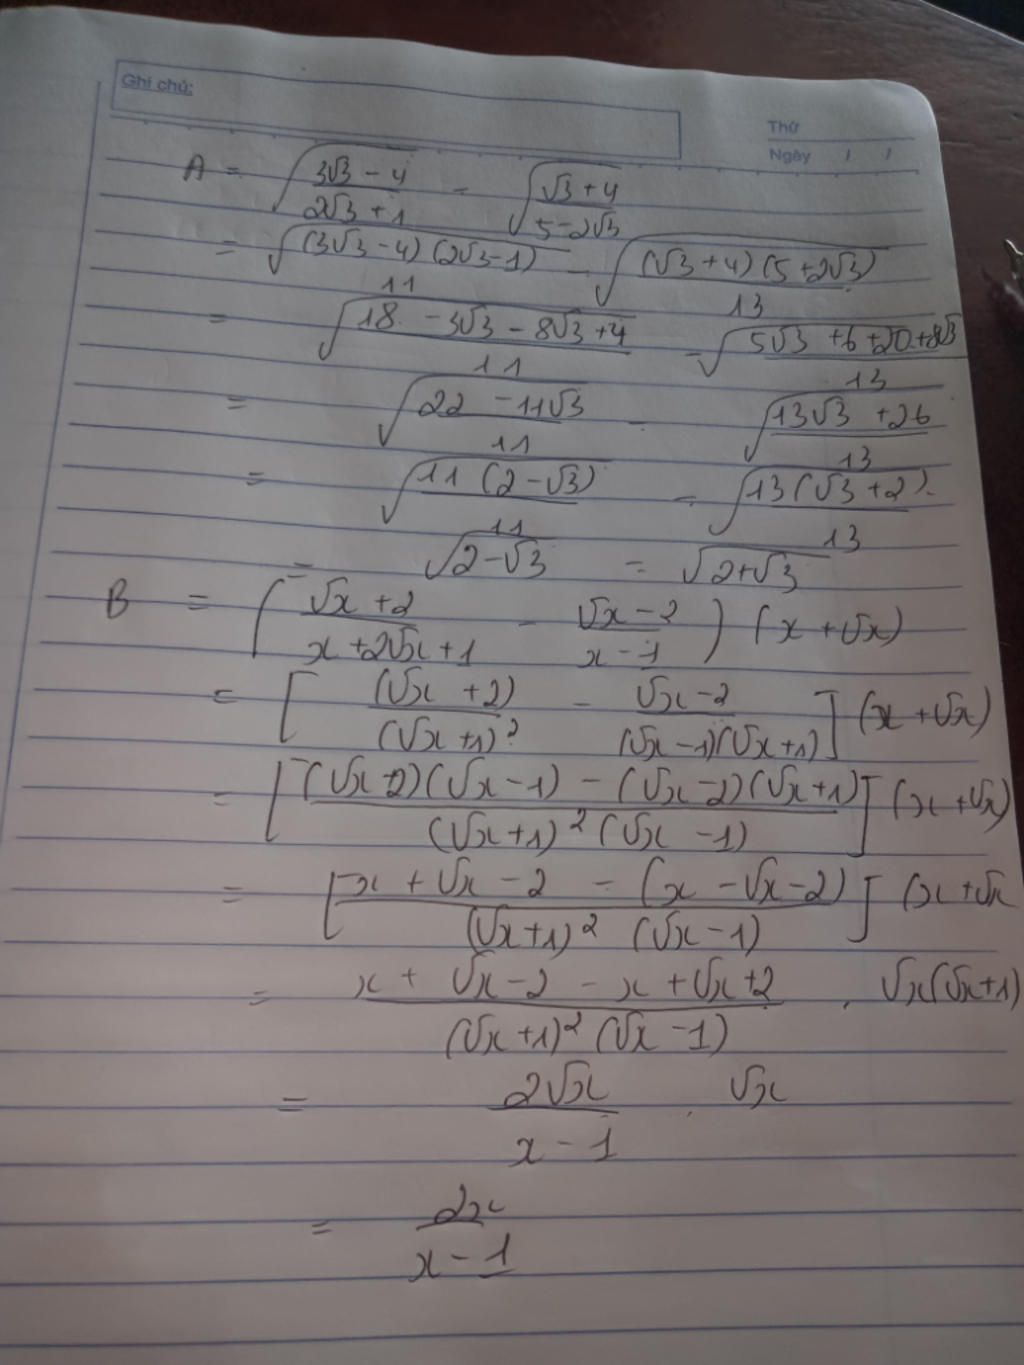 Ghi chú:
Thứ
Ngày / /
A = √((3√3 - 4)/(2√3 + 1)) - √((√3 + 4)/(5 - 2√3))
= √((3√3 - 4)(2√3 - 1)/11) - √((√3 + 4)(5 + 2√3)/13)
= √((18 - 3√3 - 8√3 + 4)/11) - √((5√3 + 6 + 20 + 8√3)/13)
= √((22 - 11√3)/11) - √((13√3 + 26)/13)
= √(11(2 - √3)/11) - √(13(√3 + 2)/13)
= √(2 - √3) = √(2 + √3)
B = ((√x + 2)/(x + 2√x + 1) - (√x - 2)/(x - 1)) (x + √x)
= [(√x + 2)/(√x + 1)² - (√x - 2)/((√x - 1)(√x + 1))] (x + √x)
= [((√x + 2)(√x - 1) - (√x - 2)(√x + 1))/((√x + 1)² (√x - 1))] (x + √x)
= [(x + √x - 2 - (x - √x - 2))/((√x + 1)² (√x - 1))] (x + √x
= (x + √x - 2 - x + √x + 2)/((√x + 1)² (√x - 1)) . √x(√x + 1)
= 2√x/(x - 1) . √x
= 2x/(x - 1)